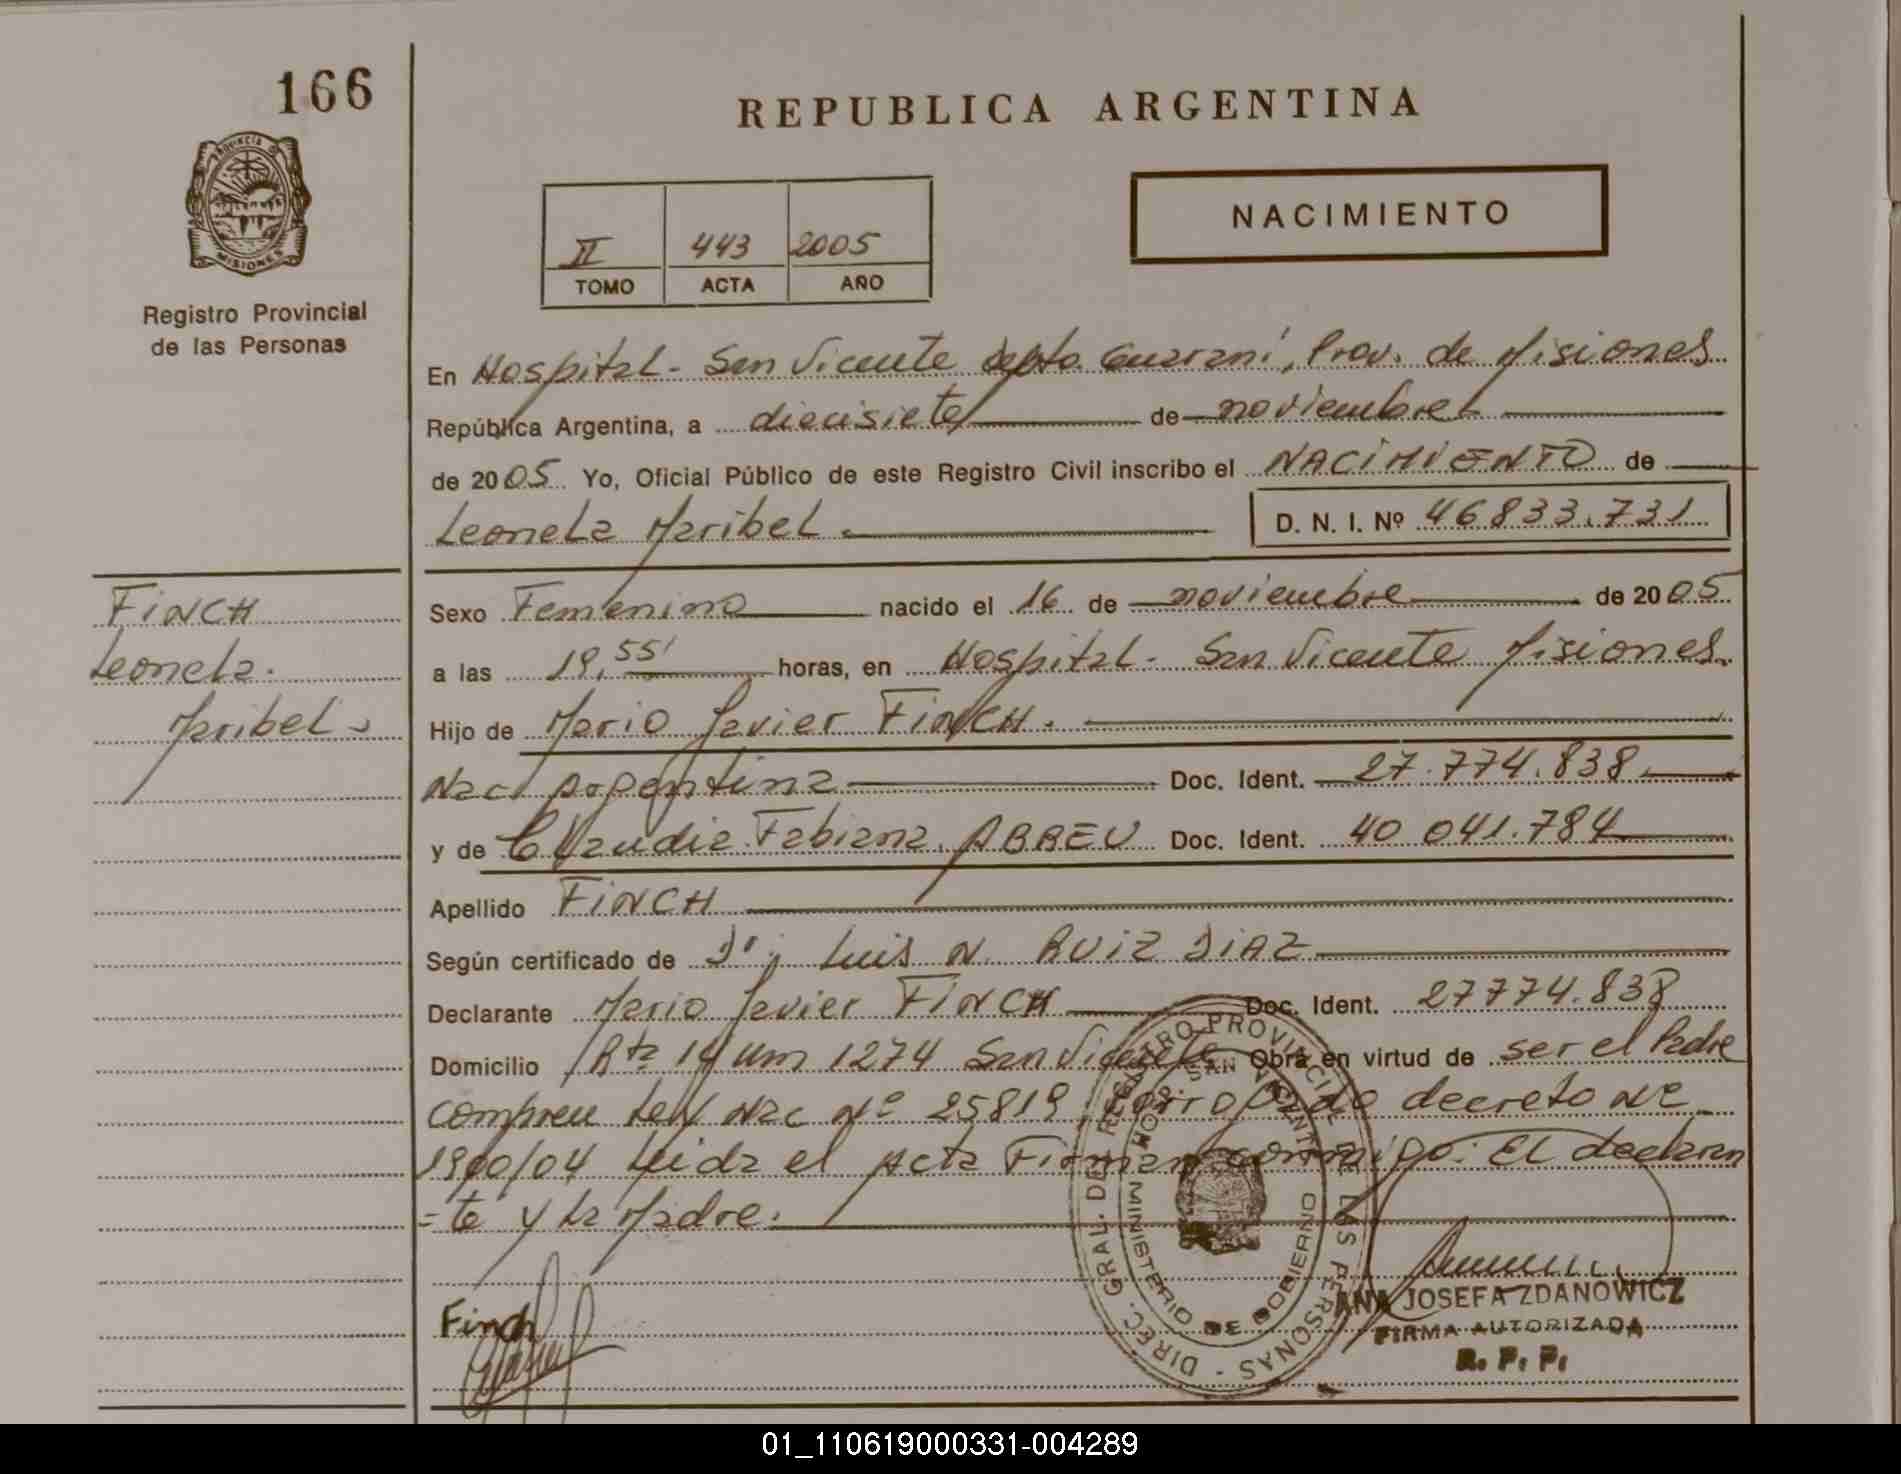 166
PROVINCIA DE
MISIONES
Registro Provincial
de las Personas
REPUBLICA ARGENTINA
NACIMIENTO
II 443 2005
TOMO ACTA AÑO
En Hospital - San Vicente depto. Guaraní, Prov. de Misiones
República Argentina, a diecisiete de noviembre
de 2005 Yo, Oficial Público de este Registro Civil inscribo el NACIMIENTO de
Leonela Maribel.
D. N. I. Nº 46833.731
FINCH
Leonela.
Maribel
Sexo Femenino nacido el 16 de noviembre de 2005
a las 19,55' horas, en Hospital - San Vicente Misiones.
Hijo de Mario Javier FINCH.
Nac. Argentina Doc. Ident. 27.774.838
y de Claudia Fabiana ABREU Doc. Ident. 40 041.784
Apellido FINCH
Según certificado de Dr. Luis N. RUIZ DIAZ
Declarante Mario Javier FINCH Doc. Ident. 27774.838
Domicilio Rta 14 Km 1274 San Vicente Obra en virtud de ser el Padre
Compren Ley Nac Nº 25819 decreto Nº
1900/04 Leida el Acta Firman conmigo: El declaran
=te y la Madre.
DIREC. GRAL. DEL REGISTRO PROVINCIAL DE LAS PERSONAS
MINISTERIO DE GOBIERNO
SAN VICENTE
Finch
ANA JOSEFA ZDANOWICZ
FIRMA AUTORIZADA
R. P. P.
01_110619000331-004289